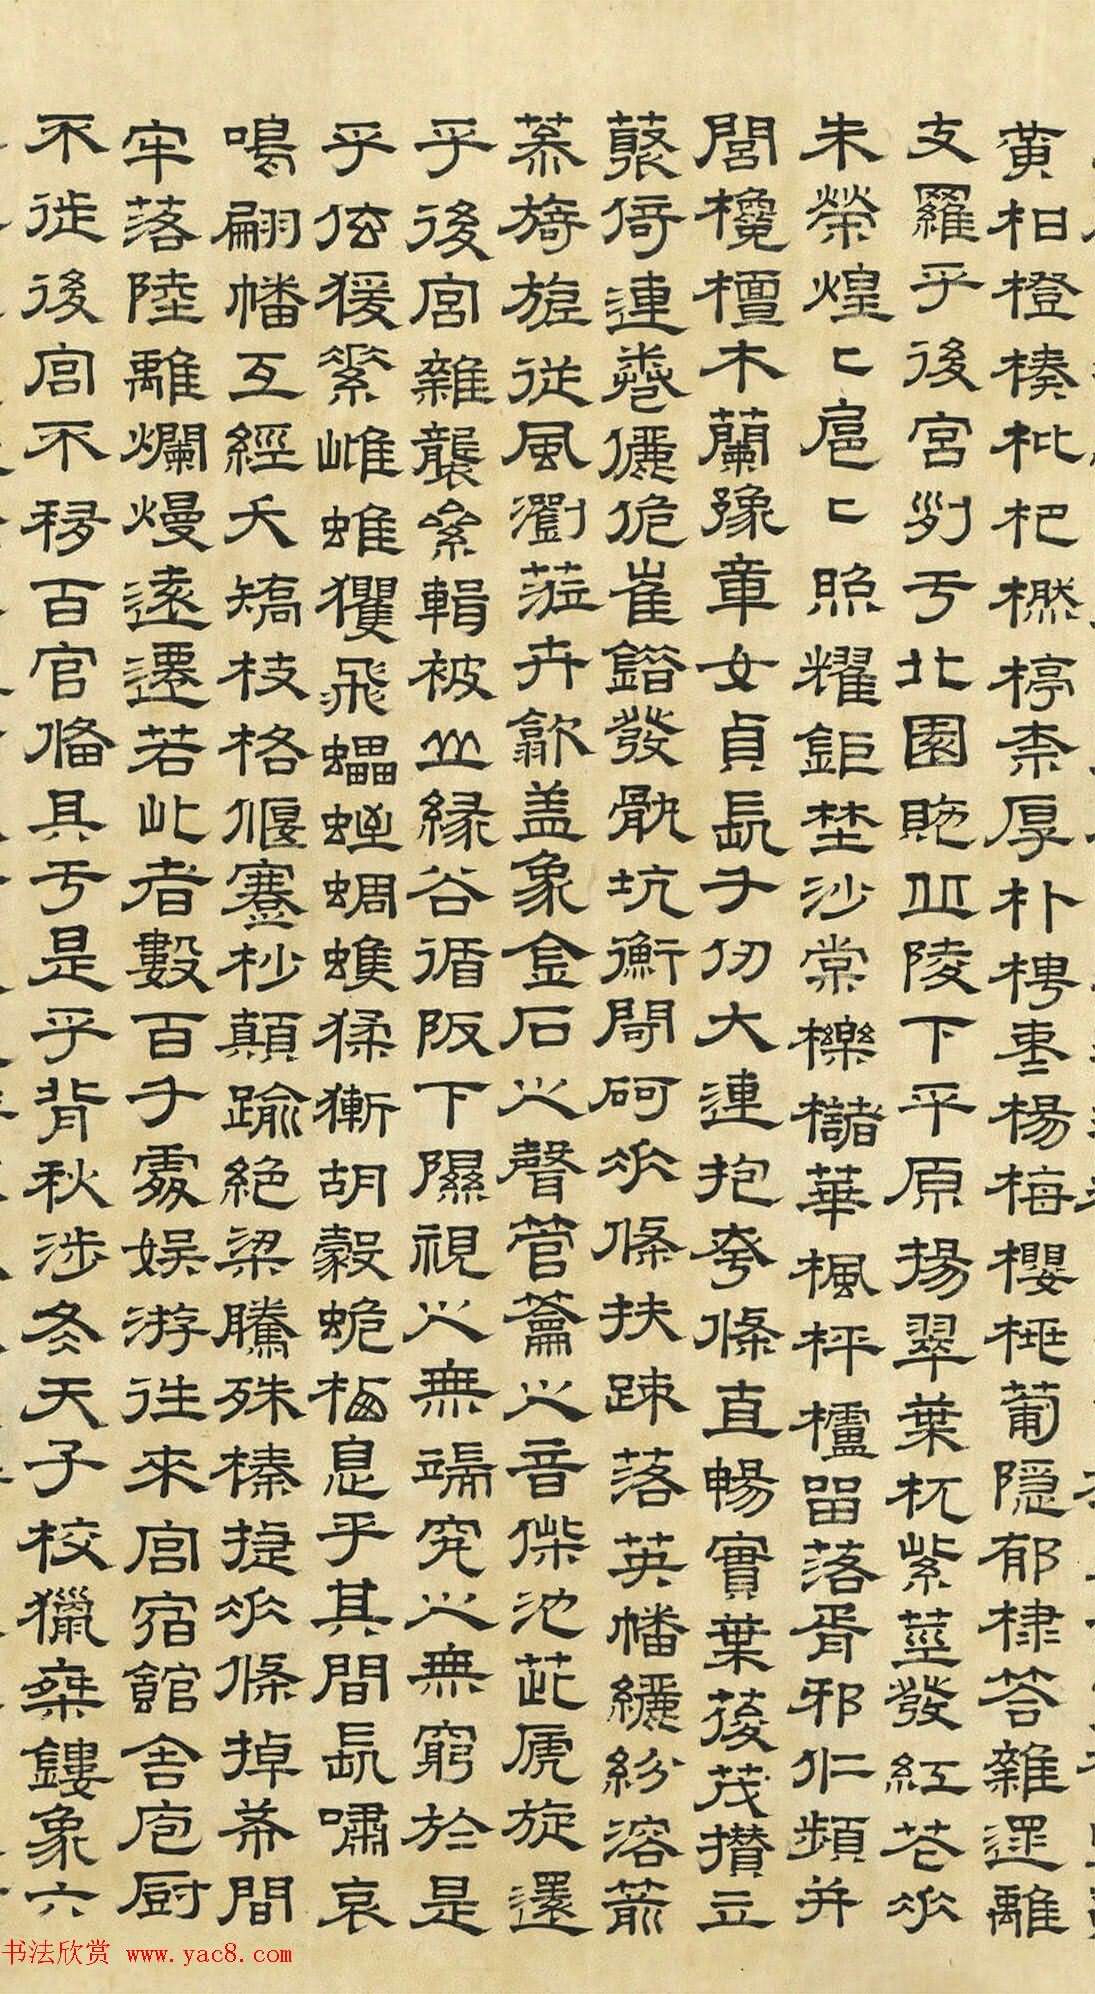 黃柏橙楱枇杷橪楟柰厚朴梬棗楊梅櫻桃葡隐郁棣荅雜遝離
支羅乎後宮列于北園貤丘陵下平原揚翠葉杌紫莖發紅花垂
朱榮煌〻扈〻照耀鉅埜沙棠櫟櫧華楓枰櫨留落胥邪仁頻并
閭欃檀木蘭豫章女貞長千仞大連抱夸條直暢實葉葰茂攢立
藂倚連卷儷佹崔錯發骫坑衡閜砢垂條扶疎落英幡纚紛溶萷
蔘旖旎從風瀏莅卉歙盖象金石之聲管籥之音偨池茈虒旋還
乎後宮雜襲絫輯被山緣谷循阪下隰視之無端究之無窮於是
乎玄猨素雌蜼玃飛蠝蛭蜩蠼猱獑胡豰蛫栖息乎其間長嘯哀
鳴翩幡互經夭矯枝格偃蹇杪顛踰絶梁騰殊榛捷垂條掉希間
牢落陸離爛熳遠遷若此者數百千處娛游往來宮宿館舍庖厨
不徙後宮不移百官俻具于是乎背秋涉冬天子校獵乘鏤象六
书法欣赏 www.yac8.com